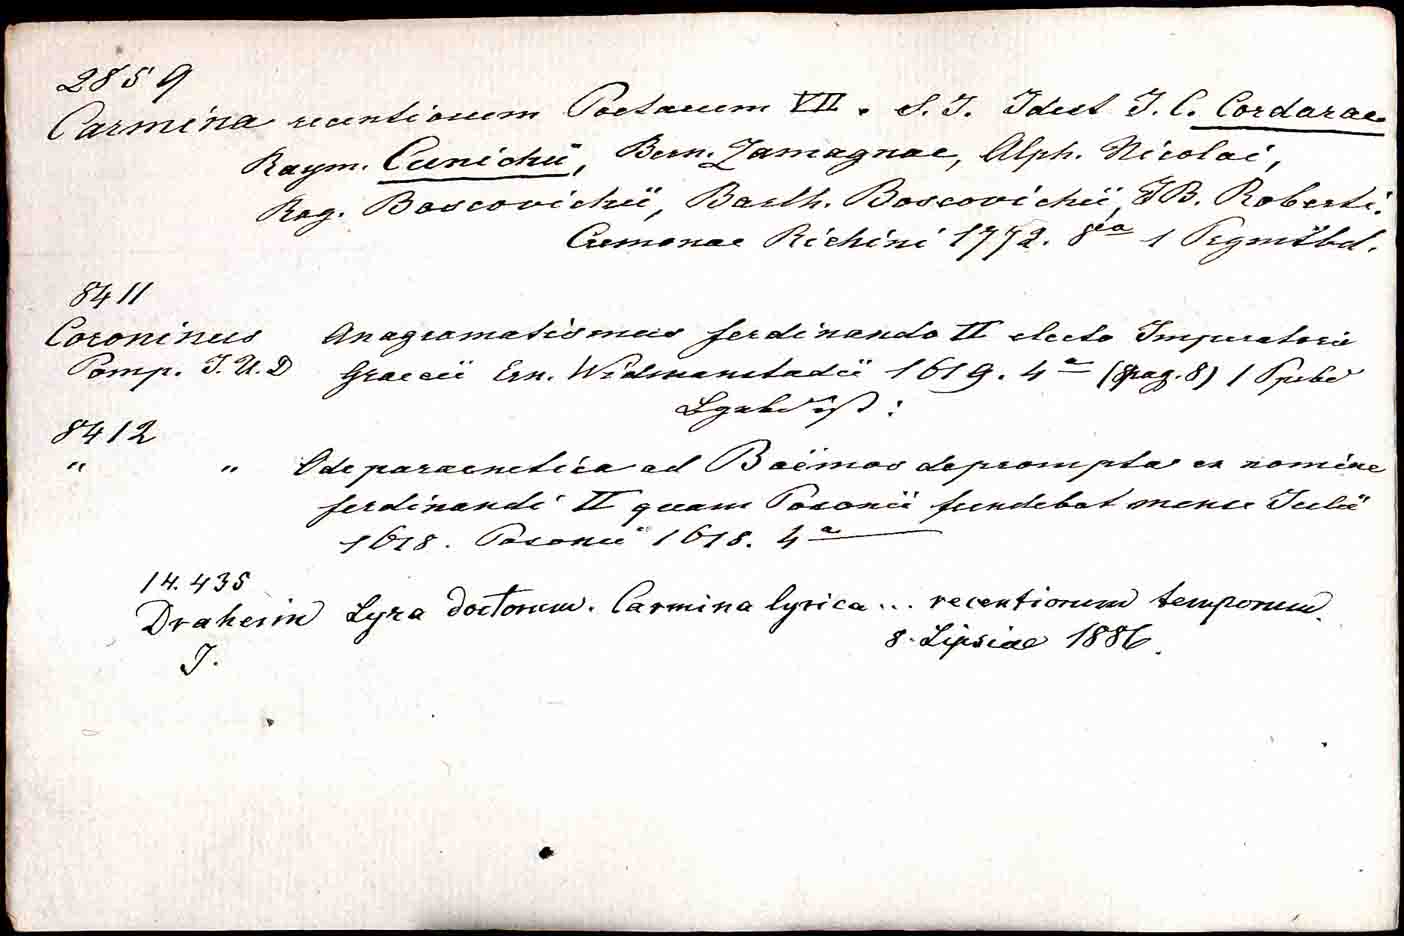 2859
Carmina recentiorum Poetarum VII. S. J. Idest J. C. Cordarae
Raym. Cunichii, Bern. Zamagnae, Alph. Nicolai,
Rog. Boscovichii, Barth. Boscovichii, JB. Roberti.
Cremonae Richini 1772. 8va 1 Pgmtbd.
8411
Coroninus Anagramatismus ferdinando II electo Imperatori
Pomp. J.U.D Graecii Ern. Widmanstadii 1619. 4a (pag. 8) 1
8412
" " Ode paraenetica ad Boëmos deprompta ex nomine
ferdinandi II quam Posonii fundebat mense Julii
1618. Posonii 1618. 4a
14.435
Draheim Lyra doctorum. Carmina lyrica... recentiorum temporum.
J. 8. Lipsiae 1886.